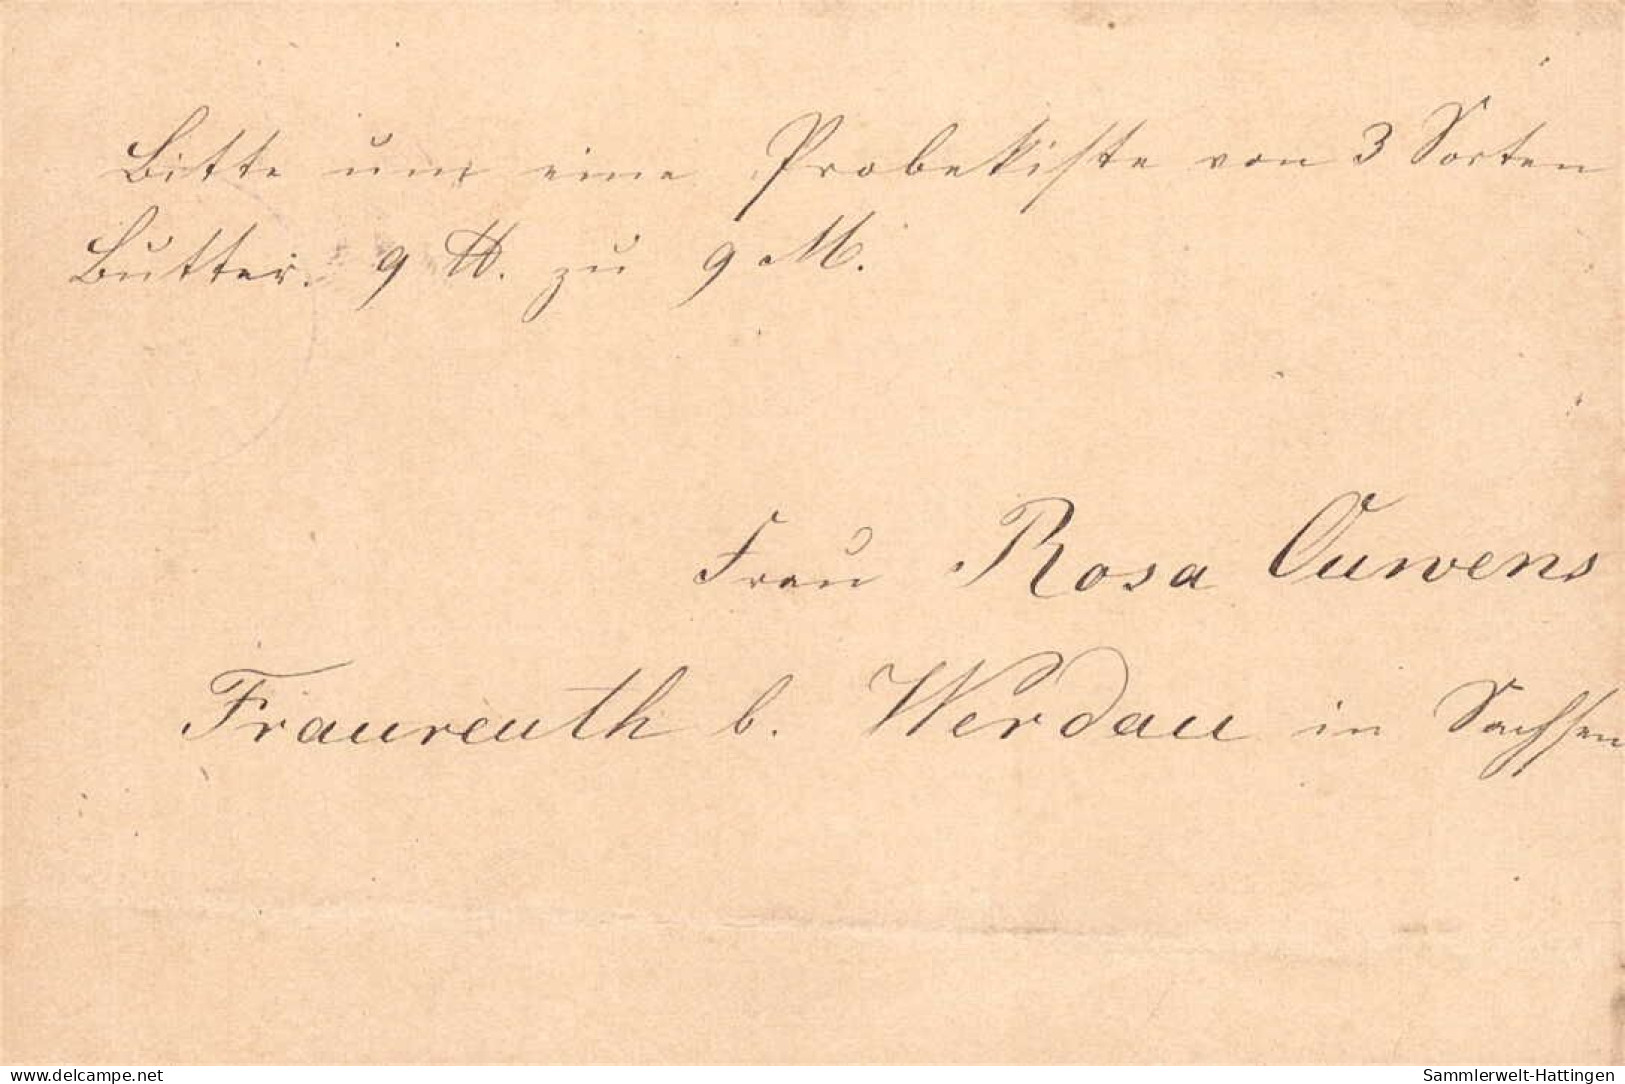 Bitte um eine Probekiste von 3 Sorten
Butter. 9 ℔. zu 9 M.
Frau Rosa Ouwens
Fraureuth b. Werdau in Sachsen
www.delcampe.net
Sammlerwelt-Hattingen